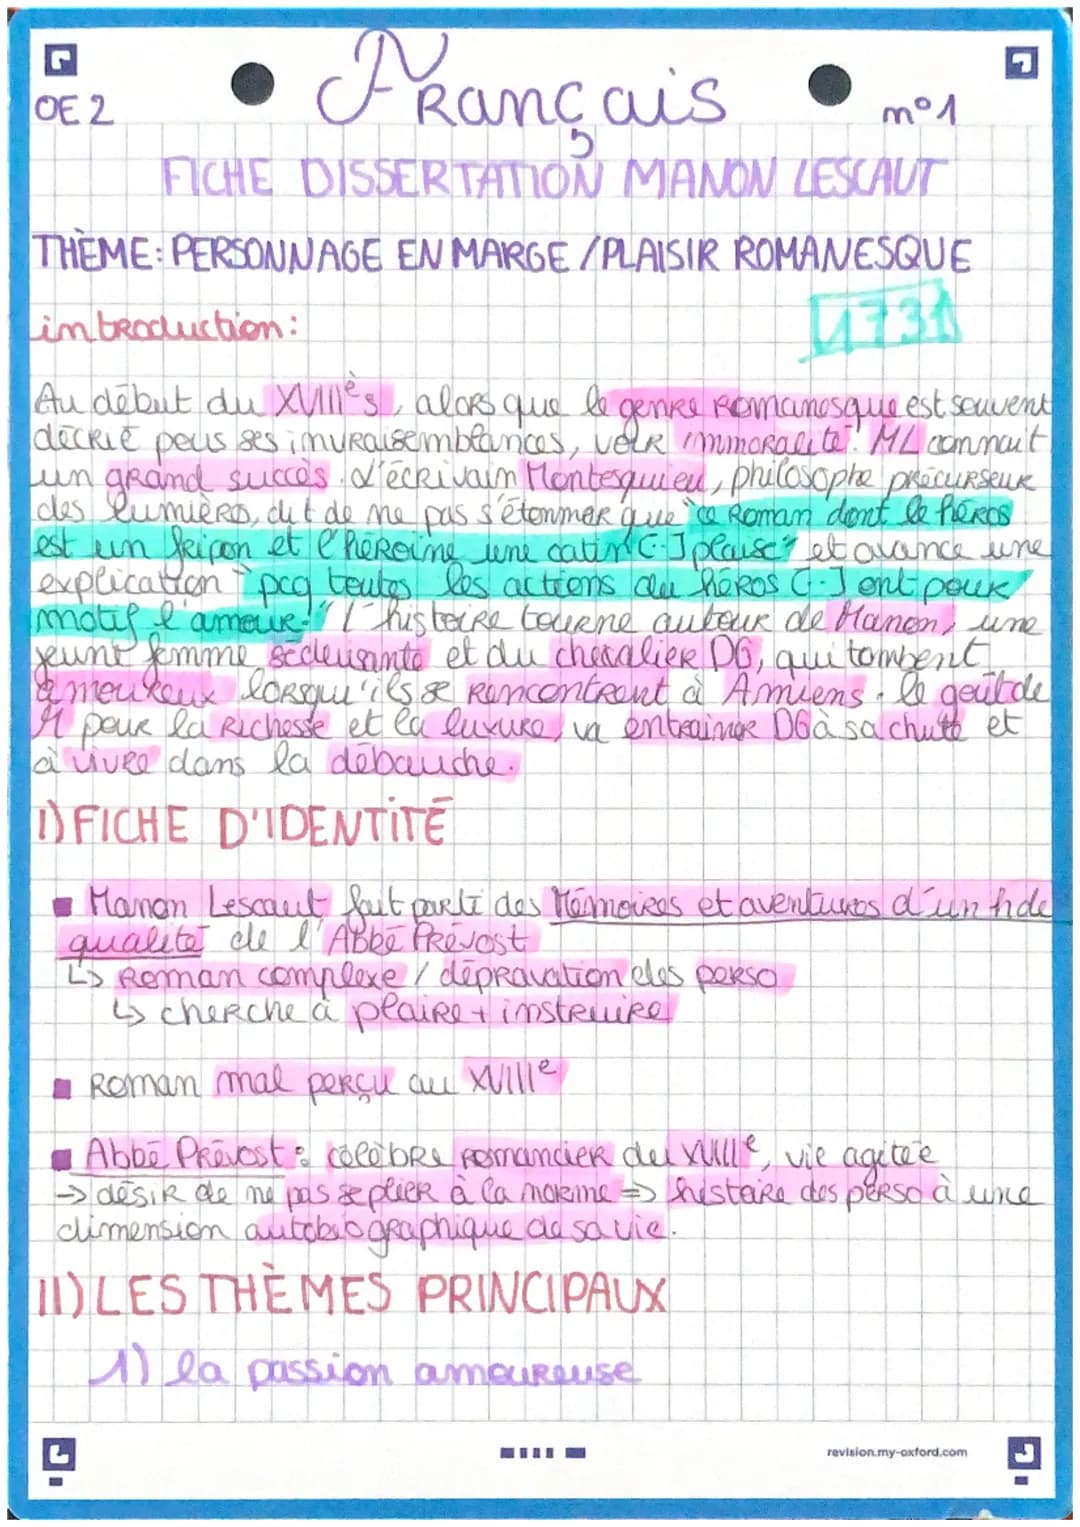 OE2 Français n°1
FICHE DISSERTATION MANON LESCAUT
THÈME: PERSONNAGE EN MARGE / PLAISIR ROMANESQUE
introduction: 1731
Au début du XVIIIè s, alors que le genre romanesque est souvent
décrié pous ses invraisemblances, voir immoralité. ML connaut
un grand succès. L'écrivain Montesquieu, philosophe précurseur
des lumières, dit de ne pas s'étonner que "ce Roman dont le héros
est un fripon et l'héroïne une catin [...] plaise" et avance une
explication "pcq toutes les actions du héros [...] ont pour
motif l'amour." L'histoire tourne autour de Manon, une
jeune femme séduisante et du chevalier DG, qui tombent
amoureux lorsqu'ils se rencontrent à Amiens. le goût de
M pour la richesse et la luxure, va entrainer DG à sa chute et
à vivre dans la débauche.
I) FICHE D'IDENTITÉ
Manon Lescaut fait parti des Mémoires et aventures d'un h de
qualité de l'Abbé Prévost
↳ Roman complexe / dépravation des perso
↳ cherche à plaire + instruire
Roman mal perçu au XVIIIe
Abbé Prévost: célèbre romancier du XVIIIe, vie agitée
→ désir de ne pas se plier à la morime ⇒ histoire des perso à une
dimension autobiographique de sa vie.
II) LES THÈMES PRINCIPAUX
1) la passion amoureuse
revision.my-oxford.com